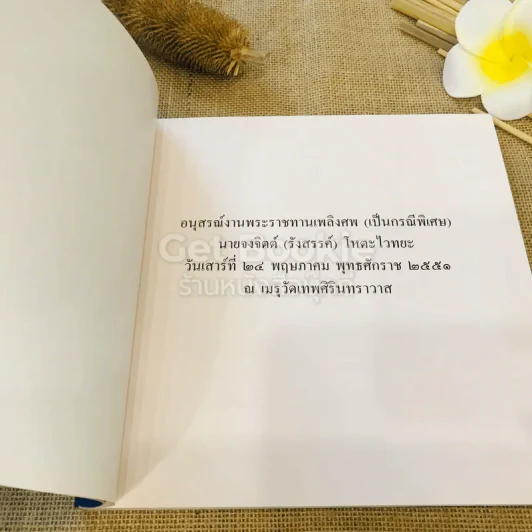 อนุสรณ์งานพระราชทานเพลิงศพ (เป็นกรณีพิเศษ)
นายจงจิตต์ (รังสรรค์) โหตะไวทยะ
วันเสาร์ที่ ๒๔ พฤษภาคม พุทธศักราช ๒๕๕๑
ณ เมรุวัดเทพศิรินทราวาส
Get Bookie